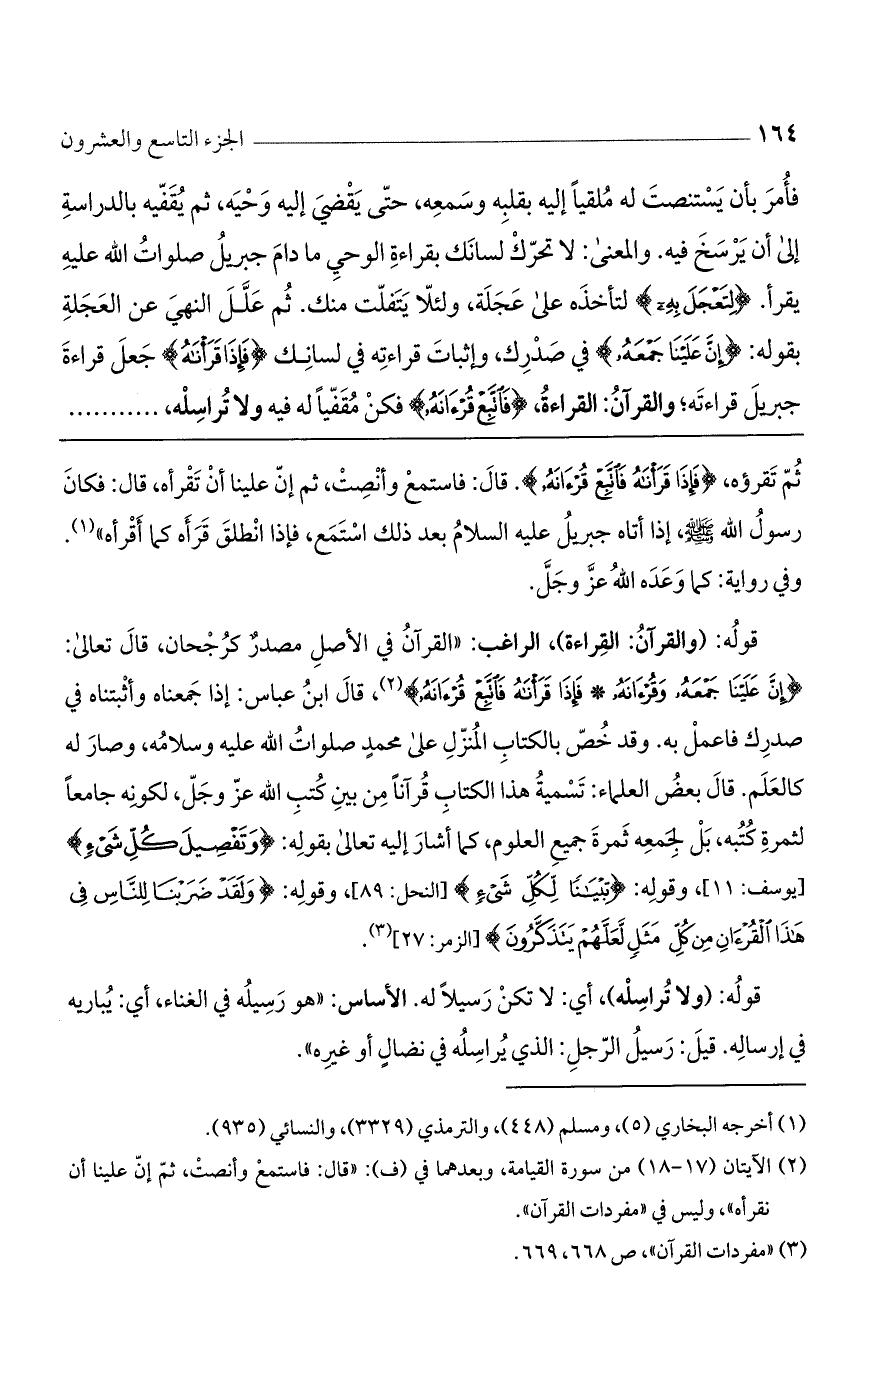 ١٦٤ الجزء التاسع والعشرون
فأُمرَ بأن يَسْتنصتَ له مُلقياً إليه بقلبِه وسَمعِه، حتّى يَقْضيَ إليه وَحْيَه، ثم يُقَفّيه بالدراسةِ
إلىٰ أن يَرْسَخَ فيه. والمعنىٰ: لا تحرّكْ لسانَك بقراءةِ الوحي ما دامَ جبريلُ صلواتُ الله عليهِ
يقرأ. ﴿لِتَعْجَلَ بِهِۦ﴾ لتأخذَه علىٰ عَجَلَة، ولئلّا يَتَفلّت منك. ثُم عَلَّلَ النهيَ عن العَجَلةِ
بقوله: ﴿إِنَّ عَلَيْنَا جَمْعَهُۥ﴾ في صَدْرِك، وإثباتَ قراءتِه في لسانِك ﴿فَإِذَا قَرَأْنَٰهُ﴾ جَعلَ قراءةَ
جبريلَ قراءتَه؛ والقرآنُ: القراءةُ، ﴿فَٱتَّبِعْ قُرْءَانَهُۥ﴾ فكنْ مُقَفّياً له فيه ولا تُراسِلْه، ...........
ثُمّ تَقرؤه، ﴿فَإِذَا قَرَأْنَٰهُ فَٱتَّبِعْ قُرْءَانَهُۥ﴾. قالَ: فاستمعْ وأنْصِتْ، ثم إنّ علينا أنْ تَقْرأه، قال: فكانَ
رسولُ الله ﷺ، إذا أتاه جبريلُ عليه السلامُ بعد ذلك اسْتَمَع، فإذا انْطلقَ قَرَأَه كما أَقْرأه»(١).
وفي رواية: كما وَعَدَه اللهُ عزَّ وجَلَّ.
قولُه: (والقرآنُ: القِراءة)، الراغب: «القرآنُ في الأصلِ مصدرٌ كرُجْحان، قالَ تعالىٰ:
﴿إِنَّ عَلَيْنَا جَمْعَهُۥ وَقُرْءَانَهُۥ * فَإِذَا قَرَأْنَٰهُ فَٱتَّبِعْ قُرْءَانَهُۥ﴾(٢)، قالَ ابنُ عباس: إذا جَمعناه وأثْبتناه في
صدرِك فاعملْ به. وقد خُصّ بالكتابِ المُنزّلِ علىٰ محمدٍ صلواتُ الله عليه وسلامُه، وصارَ له
كالعَلَم. قالَ بعضُ العلماء: تَسْميةُ هذا الكتابِ قُرآناً مِن بينِ كُتبِ الله عزّ وجَلّ، لكونِه جامعاً
لثمرةِ كُتُبه، بَلْ لجَمعِه ثَمرةَ جميعِ العلوم، كما أشارَ إليه تعالىٰ بقولِه: ﴿وَتَفْصِيلَ كُلِّ شَىْءٍ﴾
[يوسف: ١١]، وقولِه: ﴿تِبْيَٰنًا لِّكُلِّ شَىْءٍ﴾ [النحل: ٨٩]، وقولِه: ﴿وَلَقَدْ ضَرَبْنَا لِلنَّاسِ فِى
هَٰذَا ٱلْقُرْءَانِ مِن كُلِّ مَثَلٍ لَّعَلَّهُمْ يَتَذَكَّرُونَ﴾ [الزمر: ٢٧](٣).
قولُه: (ولا تُراسِلْه)، أي: لا تكنْ رَسيلاً له. الأساس: «هو رَسِيلُه في الغناء، أي: يُباريه
في إرسالِه. قيلَ: رَسيلُ الرّجلِ: الذي يُراسِلُه في نضالٍ أو غيرِه».
(١) أخرجه البخاري (٥)، ومسلم (٤٤٨)، والترمذي (٣٣٢٩)، والنسائي (٩٣٥).
(٢) الآيتان (١٧-١٨) من سورة القيامة، وبعدهما في (ف): «قال: فاستمعْ وأنصتْ، ثمّ إنّ علينا أن
نقرأه»، وليس في «مفردات القرآن».
(٣) «مفردات القرآن»، ص ٦٦٨، ٦٦٩.